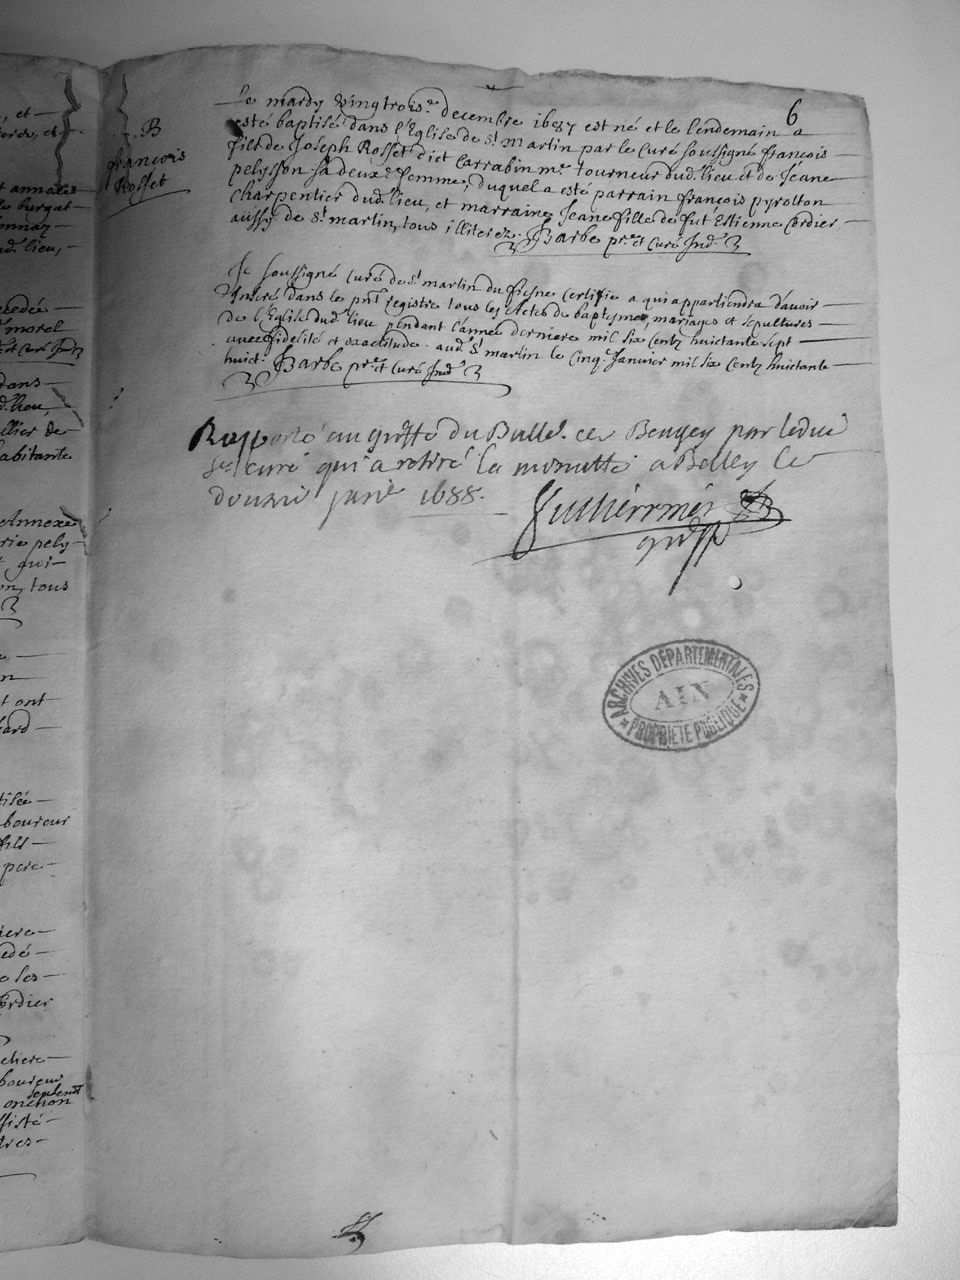 6
B
francois
Rosset
Le mardy vingtrois.e decembre 1687 est né et le lendemain a
esté baptisé dans l'Eglise de St martin par le curé soussigné françois
filz de Joseph Rosset dict Carrabin me tourneur dud. lieu et de Jeane
pelysson sa deuxe femme, duquel a esté parrain françois pyrolton
charpentier dud. lieu, et marraine Jeane fille de fut Estienne Cordier
aussy de St martin, tous illiterez. Barbe pre et Curé Susd.
Je soussigné curé de St martin du fresne certifie a qui appartiendra d'avoir
Inseré dans le pnt registre tous les Actes de baptesmes, mariages et sepultures
de l'Eglise dud. lieu pendant l'année derniere mil six centz huictante sept
avec fidelité et exactitude. aud. St martin le cinq. Janvier mil six centz huictante
huict. Barbe pre et Curé Susd.
Rapporté au greffe du Balle. de Beugey par ledict
Sr curé qui a retiré la minutte a Belley le
douzie janvr 1688.
greff
ARCHIVES DÉPARTEMENTALES
AIN
PROPRIETE PUBLIQUE
, et
annales
lieu,
morel
et Curé Susd
dans
d. lieu,
habitante
Annexe
pely-
qui-
tous
ont
boureur
filz
pere
Cordier
boureur